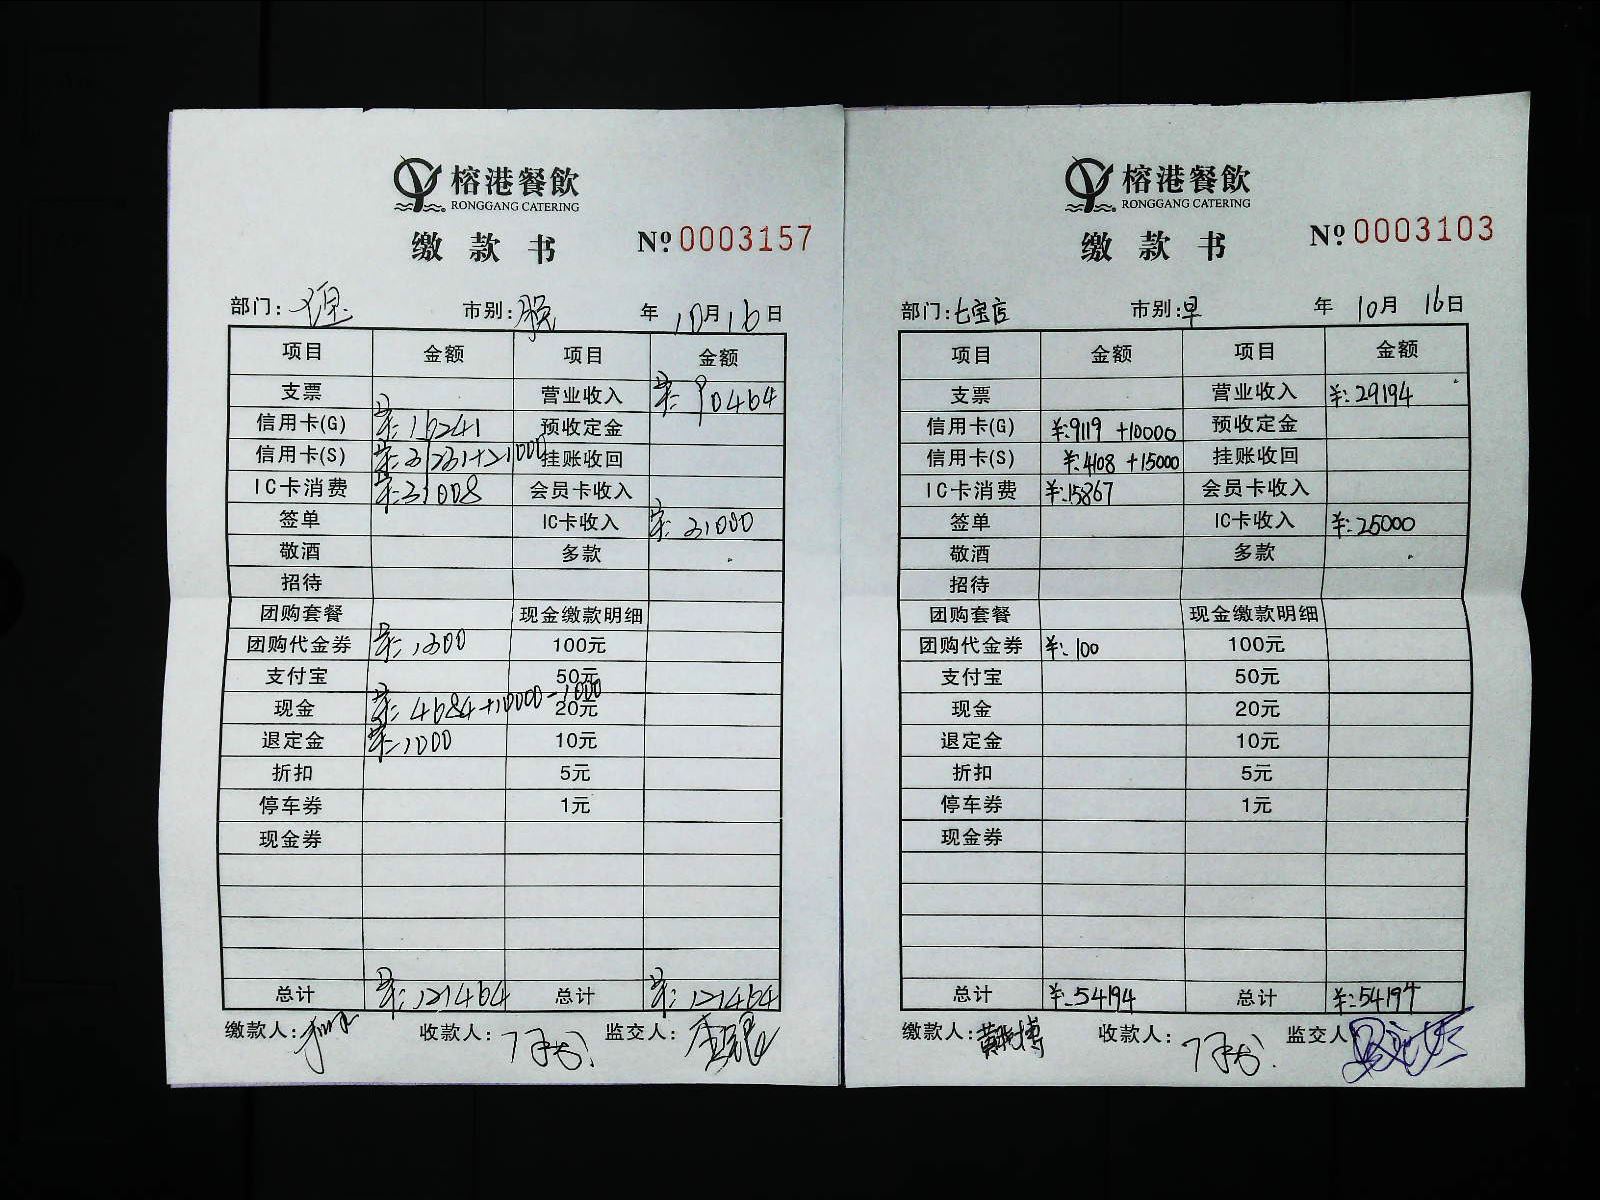 榕港餐飲
RONGGANG CATERING
缴款书 № 0003157
部门: 市别: 年 10月16日
项目 金额 项目 金额
支票 营业收入 ¥:90464
信用卡(G) ¥:16241 预收定金
信用卡(S) ¥:31231+21000 挂账收回
IC卡消费 ¥:31008 会员卡收入
签单 IC卡收入 ¥:31000
敬酒 多款
招待
团购套餐 现金缴款明细
团购代金券 ¥:1300 100元
支付宝 50元
现金 ¥:4684+10000-1000 20元
退定金 ¥:1000 10元
折扣 5元
停车券 1元
现金券
总计 ¥:121464 总计 ¥:121464
缴款人: 收款人: 监交人:
榕港餐飲
RONGGANG CATERING
缴款书 № 0003103
部门:七宝店 市别:早 年 10月 16日
项目 金额 项目 金额
支票 营业收入 ¥:29194
信用卡(G) ¥:9119 +10000 预收定金
信用卡(S) ¥:4108 +15000 挂账收回
IC卡消费 ¥:15867 会员卡收入
签单 IC卡收入 ¥:25000
敬酒 多款
招待
团购套餐 现金缴款明细
团购代金券 ¥:100 100元
支付宝 50元
现金 20元
退定金 10元
折扣 5元
停车券 1元
现金券
总计 ¥:54194 总计 ¥:54194
缴款人: 收款人: 监交人